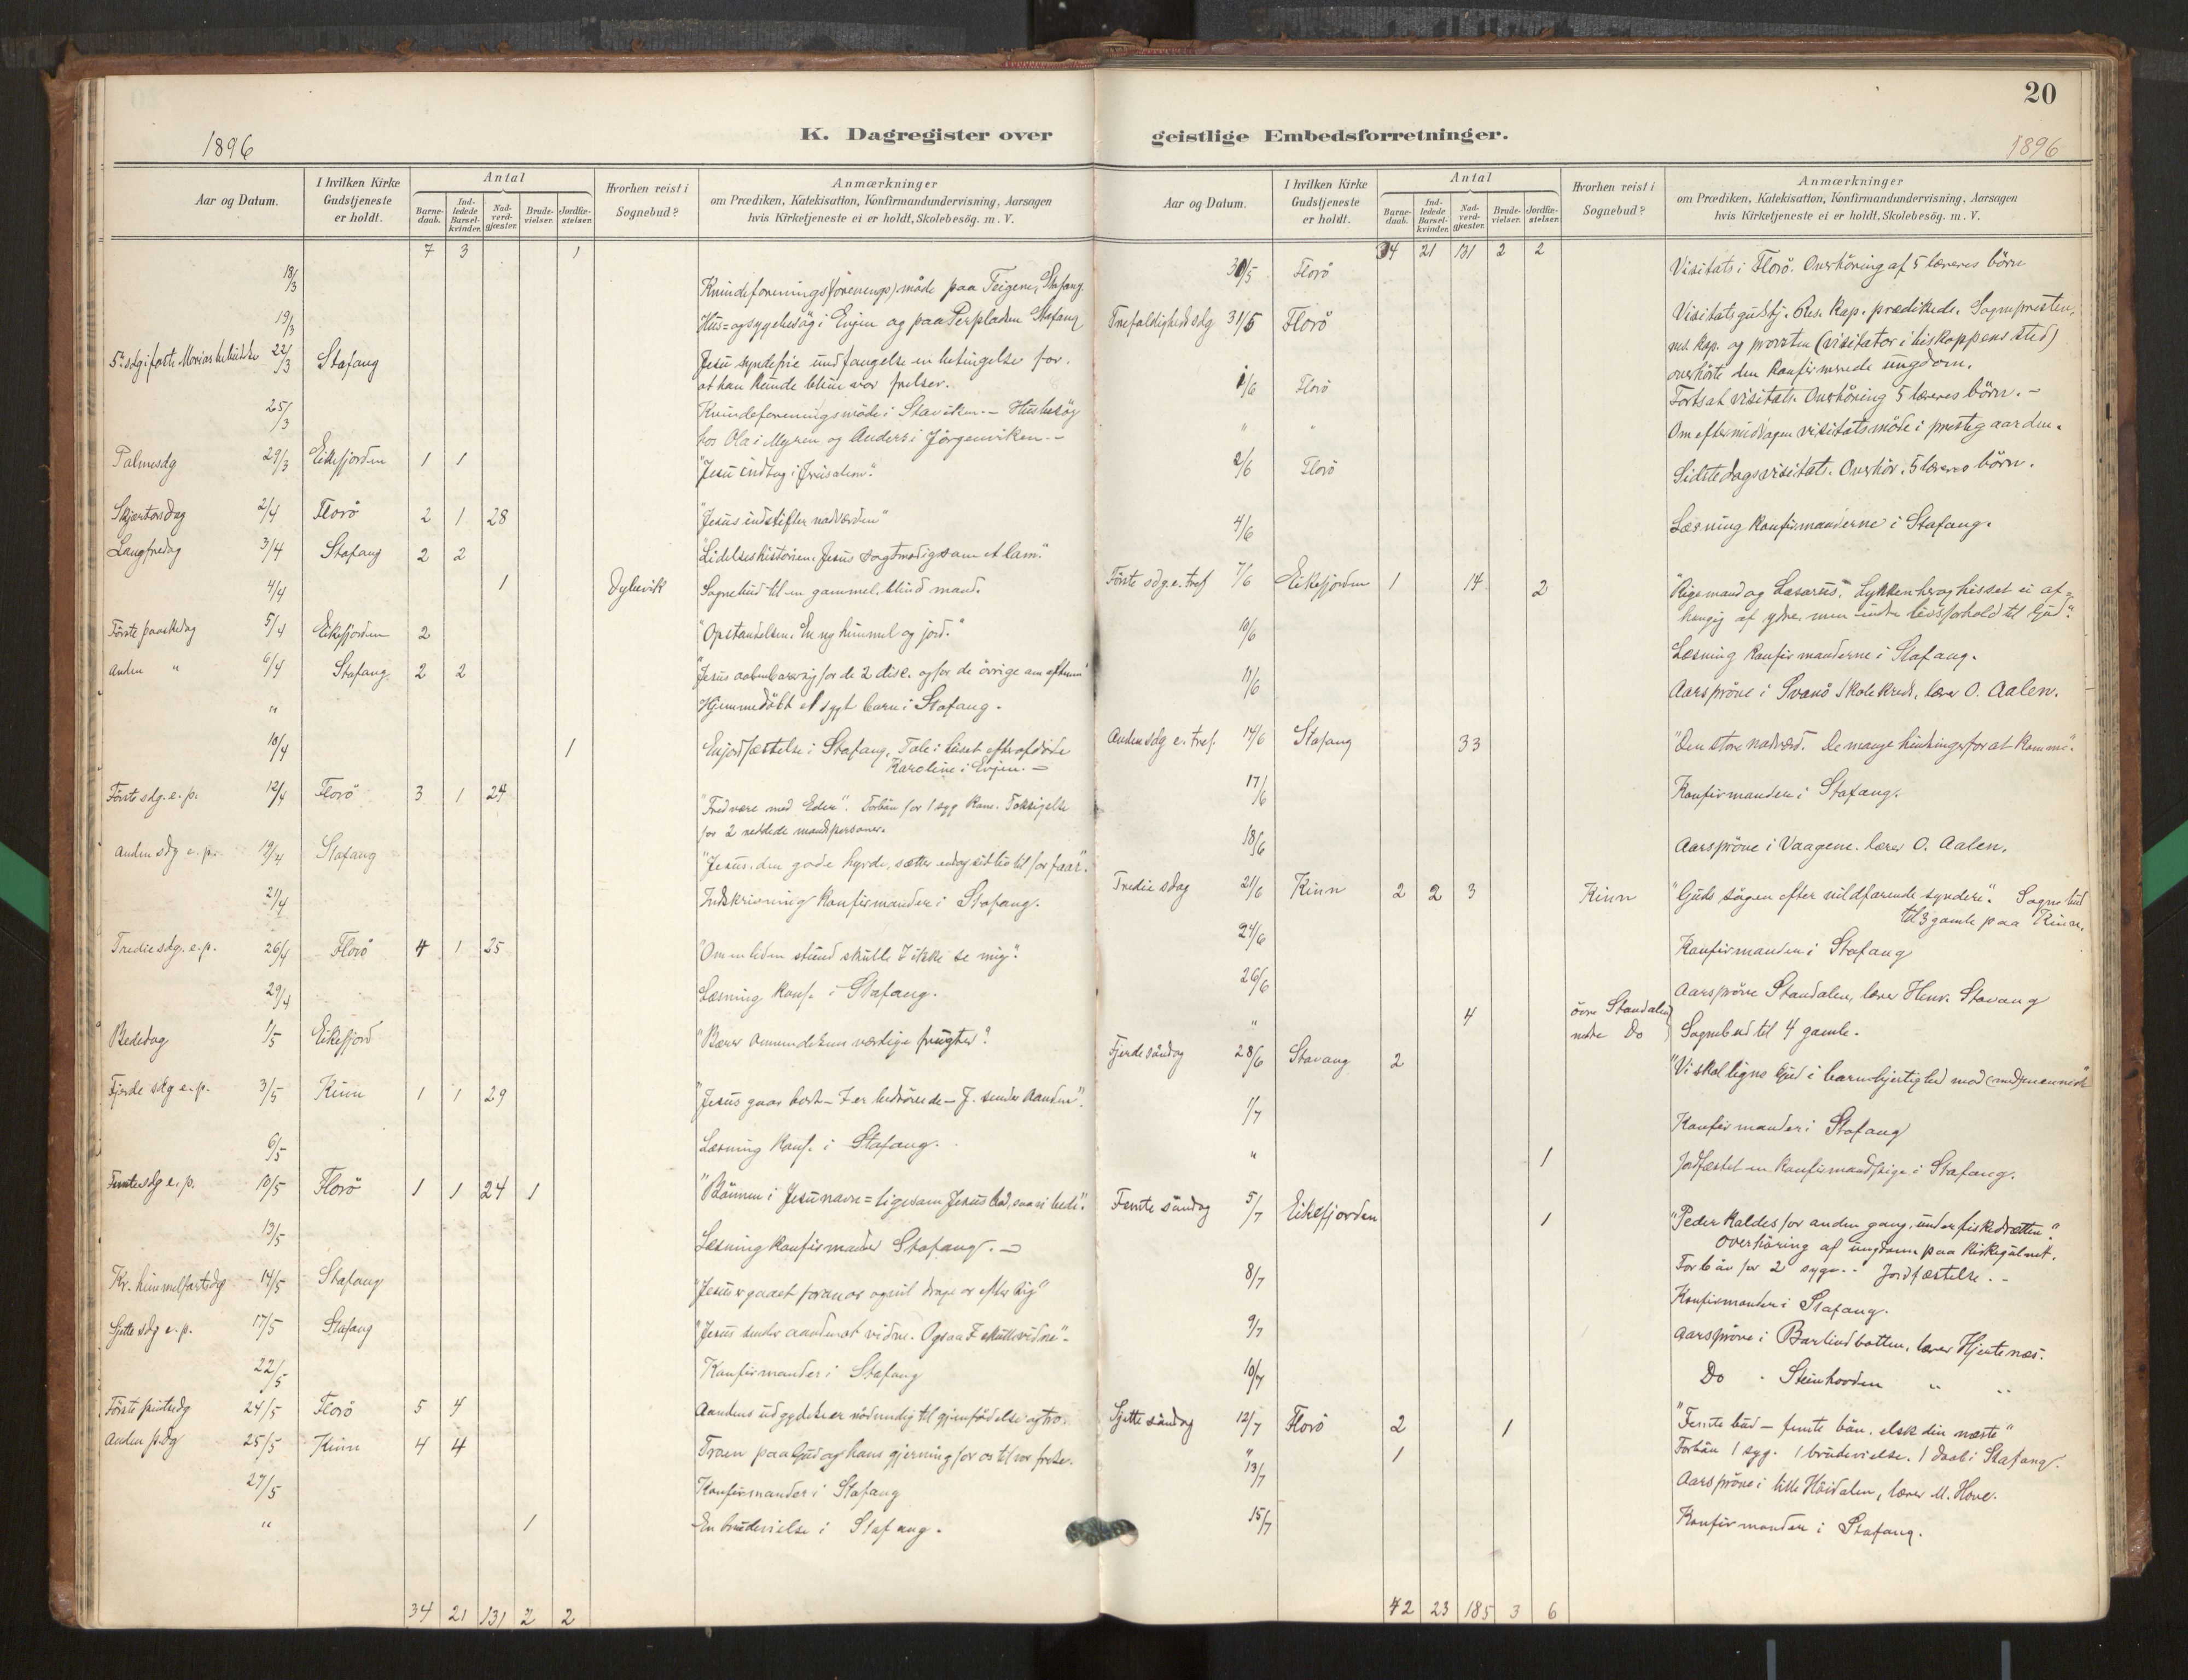 20
1896
K. Dagregister over geistlige Embedsforretninger.
1896
Aar og Datum.
I hvilken Kirke Gudstjeneste er holdt.
Antal
Barne-daab.
Ind-ledede Barsel-kvinder.
Nad-verd-gjæster.
Brude-vielser.
Jordfæ-stelser.
Hvorhen reist i Sognebud?
Anmærkninger
om Prædiken, Katekisation, Konfirmandundervisning, Aarsagen
hvis Kirketjeneste ei er holdt, Skolebesög. m. V.
7 3 1
18/3 Kvindeforenings møde paa Teigene, Stafang.
19/3 Hus= og sygebesøg i Evjen og paa Perpladsen Stafang
5te sdg i faste Marias 22/3 Stafang Jesu syndefrie undfangelse en betingelse for.
at han kunde blive vor frelser.
25/3 Kvindeforeningsmøde i Staviken. – Husbesøg
hos Ola i Myren og Anders i Jørgenviken. –
Palmesdg 29/3 Eikefjorden 1 1 "Jesu indtog i Jerusalem".
Skjærtorsdag 2/4 Florö 2 1 28 "Jesus indstifter nadverden"
Langfredag 3/4 Stafang 2 2 "Lidelseshistorien. Jesus sagtmodig som et lam."
4/4 1 Sognebud til en gammel, blind mand.
Første paaskedag 5/4 Eikefjorden 2 "Opstandelsen. En ny himmel og jord."
Anden " 6/4 Stafang 2 2 "Jesus aabenbarer sig for de 2 disc. og for de øvrige om aftenen"
" Hjemmedøbt et sygt barn i Stafang.
10/4 1 En jordfæstelse i Stafang, Tale i huset efter afdøde
Karoline i Evjen. –
Første sdg. e. p. 12/4 Florö 3 1 24 "Fred være med Eder". Forbøn for 1 syg kone. Taksigelse
for 2 reddede mandspersoner.
Anden sdg e. p. 19/4 Stafang "Jesus, den gode hyrde, sætter endog sit liv til for faar".
21/4 Indskrivning konfirmander i Stafang.
Tredie sdg. e. p. 26/4 Florö 4 1 25 "Om en liden stund skulle I ikke se mig".
29/4 Læsning konf. i Stafang.
Bededag 1/5 Eikefjord "Bærer omvendelsens værdige frugter".
Fjerde sdg e. p. 3/5 Kinn 1 1 29 "Jesus gaar bort – I er bedrøvede – J. sender Aanden".
6/5 Læsning konf. i Stafang.
Femte sdg e. p. 10/5 Florö 1 1 24 1 "Bønnen i Jesu navn = ligesom Jesus bad, saa vi bede".
13/5 Læsning konfirmander Stafang. –
Kr. himmelfartsdg 14/5 Stafang "Jesus er gaaet foran os og vil drage os efter sig"
Sjette sdg e. p. 17/5 Stafang "Jesus sender aanden at vidne. Ogsaa I skulle vidne".
22/5 Konfirmander i Stafang
Første pintsedg 24/5 Florö 5 4 Aandens udgydelse er nødvendig til gjenfødelse og tro.
Anden p.dg 25/5 Kinn 4 4 Troen paa Gud og hans gjerning for os til vor frelse.
27/5 Konfirmander i Stafang
" 1 En brudevielse i Stafang.
34 21 131 2 2
Aar og Datum.
I hvilken Kirke Gudstjeneste er holdt.
Antal
Barne-daab.
Ind-ledede Barsel-kvinder.
Nad-verd-gjæster.
Brude-vielser.
Jordfæ-stelser.
Hvorhen reist i Sognebud?
Anmærkninger
om Prædiken, Katekisation, Konfirmandundervisning, Aarsagen
hvis Kirketjeneste ei er holdt, Skolebesög. m. V.
34 21 131 2 2
30/5 Florö Visitats i Florö. Overhøring af 5 læreres børn
Trefoldigheds sdg 31/5 Florö Visitatsgudstj. Res. kap. prædikede. Sognepresten,
res. kap. og provsten (visitator i biskoppens sted)
overhørte den konfirmerede ungdom.
1/6 Florö Fortsat visitats. Overhøring 5 læreres børn. –
" " Om eftermiddagen visitatsmøde i prestegaarden.
2/6 Florö Sidste dags visitats. Overhør. 5 læreres børn.
4/6 Læsning konfirmanderne i Stafang.
Første sdg. e. tref 7/6 Eikefjorden 1 14 2 "Rigmand og Lasarus". Lykken herog hisset ei af=
hængig af ydre, men indre livsforhold til Gud".
10/6 Læsning konfirmanderne i Stafang.
11/6 Aarsprøve i Svanø Skolekreds, lærer O. Aalen.
Anden sdg e. tref. 14/6 Stafang 33 "Den store nadverd. De mange hindringer for at komme".
17/6 Konfirmander i Stafang.
18/6 Aarsprøve i Vaagene. lærer O. Aalen.
Tredie sdag 21/6 Kinn 2 2 3 Kinn "Guds søgen efter vildfarende syndere". Sognebud
til 3 gamle paa Kinn.
24/6 Konfirmander i Stafang
26/6 Aarsprøve Standalen, lærer Henr. Stavang
" 4 øvre Standalen
nedre Do Sognebud til 4 gamle.
Fjerde søndag 28/6 Stavang 2 "Vi skal ligne Gud i barmhjertighed mod (med)mennesk"
1/7 Konfirmander i Stafang
" 1 Jordfæstet en konfirmandpige i Stafang.
Femte søndag 5/7 Eikefjorden 1 "Peder kaldes for anden gang, under fiskedrætten".
Overhøring af ungdom paa kirkegulvet.
Forbøn for 2 syge. – Jordfæstelse. –
8/7 Konfirmander i Stafang.
9/7 Aarsprøve i Barlindbotten, lærer Hjertenæs.
10/7 Do " Steinhovden " "
Sjette søndag 12/7 Florö 2 1 "Femte bud – femte bøn. elsk din næste"
" 1 Forbøn 1 syg. 1 brudevielse. 1 daab i Stafang.
13/7 Aarsprøve i lille Høidalen, lærer M. Hove.
15/7 Konfirmander i Stafang.
42 23 185 3 6